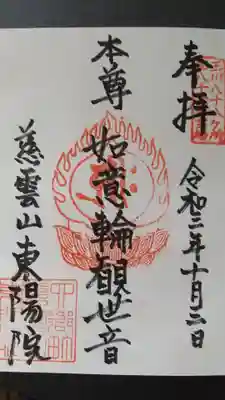 奉拝
令和二年十月二日
本尊
如意輪観世音
慈雲山東陽院